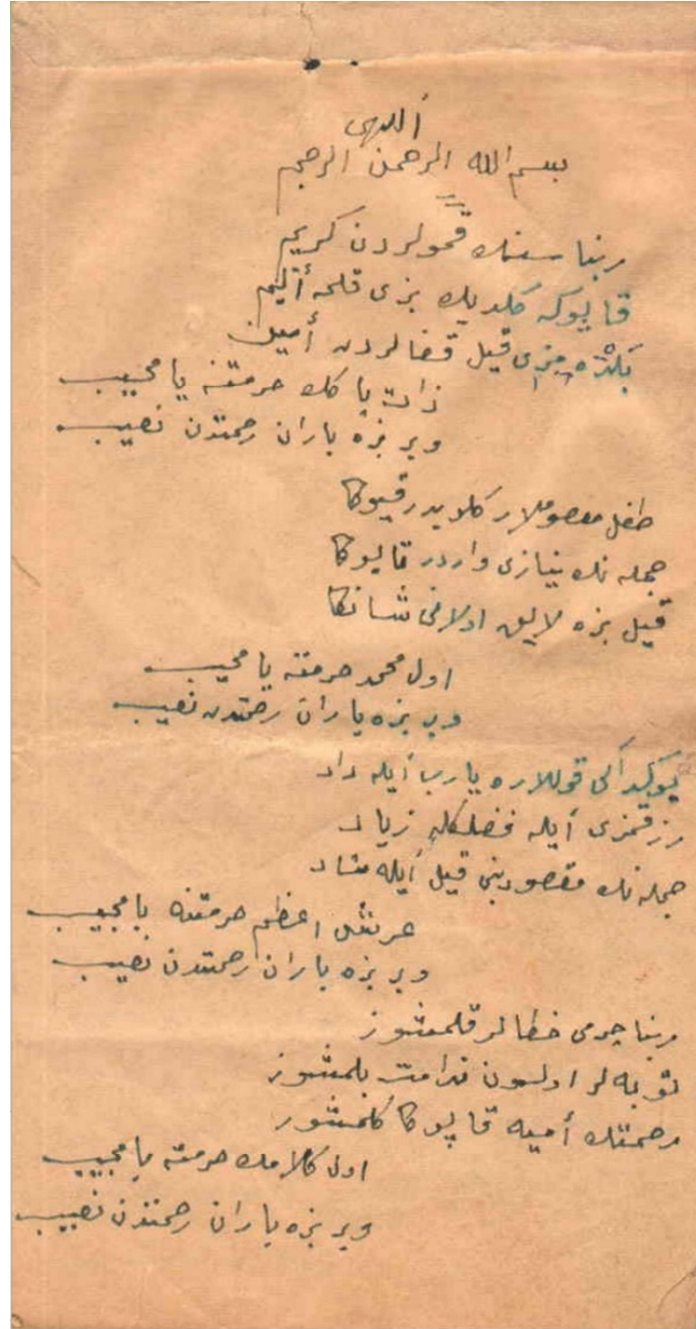 أللهى
بسم الله الرحمن الرحيم
ربنا سنسك قمولردن كريم
قاپوكه كلديك بزى قلمه أليم
قيل قضالردن أمين
ذات پاكك حرمتنه يا مجيب
وير بزه باران رحمتدن نصيب
طفل معصوملار كلايدر قپوكا
جمله نك نيازى واردر قاپوكا
قيل بزه لايق اولانى شانكا
اول محمد حرمتنه يا مجيب
وير بزه باران رحمتدن نصيب
قوللاره يارب أيله داد
رزقمزى أيله فضلكله زياد
جمله نك مقصودينى قيل أيله شاد
عرش اعظم حرمتنه يا مجيب
وير بزه باران رحمتدن نصيب
ربنا جرمى خطالر قلمشوز
توبه لر اولسون ندامت بلمشوز
رحمتك أميد قاپوكا كلمشوز
اول كلامك حرمته يا مجيب
وير بزه باران رحمتدن نصيب